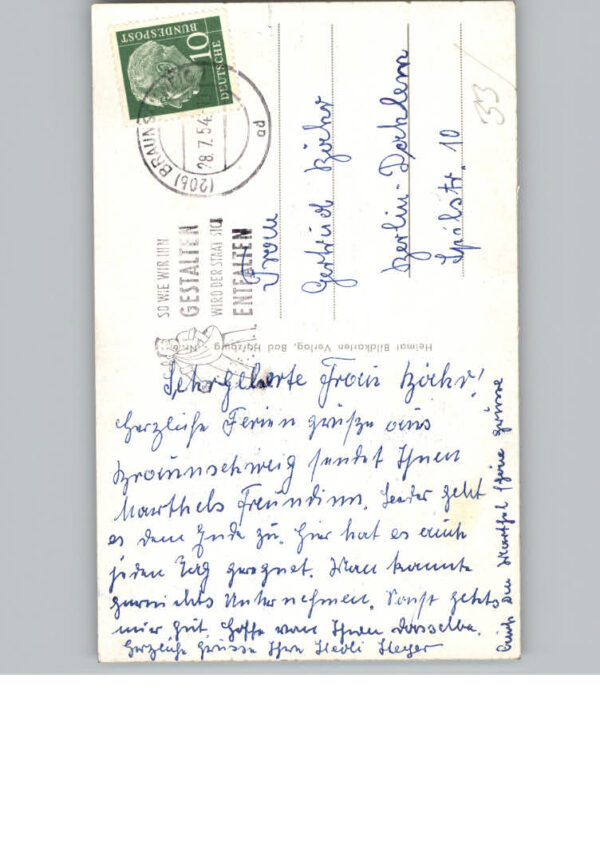 DEUTSCHE
BUNDESPOST
10
(20b) BRAUNS
28.7.54
ad
SO WIE WIR IHN
GESTALTEN
WIRD DER STAAT SICH
ENTFALTEN
Frau
Gertrud Bähr
Berlin-Dahlem
Spilstr. 10
33
Heimat Bildkarten Verlag, Bad Harzburg
Sehrgeherte Frau Bähr!
Herzliche Ferien grüße aus
Braunschweig sendet Ihnen
Marthels Freundinn. Leider geht
es dem Ende zu. Hier hat es auch
jeden Tag geregnet. Man kannte
garnichts Unternehmen. Sonst gehts
mir gut. Hoffe von Ihnen dasselbe.
Herzliche Grüsse Ihre Hedli Heyer
Auch von Marthel schöne Grüsse